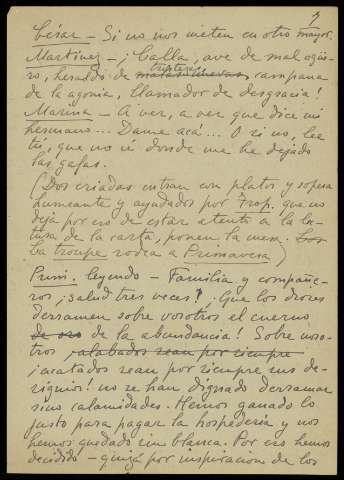 7
César – Si no nos meten en otro mayor.
Martínez – ¡Calla, ave de mal agüe-
tristezas
ro, heraldo de malas nuevas campana
de la agonía, llamador de desgracia!
Marina – A ver, a ver que dice mi
hermano... Dame acá... O si no, lee
tú, que no sé donde me he dejado
las gafas.
(Dos criadas entran con platos y sopera
humeante y ayudados por Trop. que no
deja por eso de estar atento a la lec-
tura de la carta, ponen la mesa.
La troupe rodea a Primavera)
Prim. leyendo – Familia y compañe-
ros ¡salud tres veces! ¡Que los dioses
derramen sobre vosotros el cuerno
de oro de la abundancia! Sobre noso-
tros ¡alabados sean por siempre
¡acatados sean por siempre sus de-
signios! no se han dignado derramar
sino calamidades. Hemos ganado lo
justo para pagar la hospedería y nos
hemos quedado sin blanca. Por eso hemos
decidido – quizá por inspiración de los